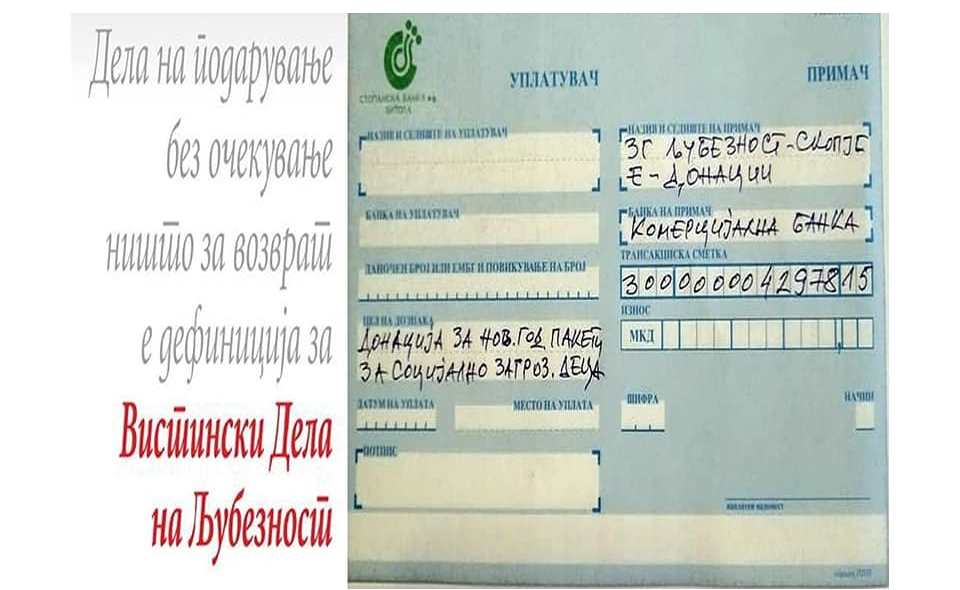 Дела на подарување
без очекување
ништо за возврат
е дефиниција за
Вистински Дела
на Љубезност
СТОПАНСКА БАНКА а.д.
БИТОЛА
УПЛАТУВАЧ
НАЗИВ И СЕДИШТЕ НА УПЛАТУВАЧ
БАНКА НА УПЛАТУВАЧ
ДАНОЧЕН БРОЈ ИЛИ ЕМБГ И ПОВИКУВАЊЕ НА БРОЈ
ЦЕЛ НА ДОЗНАКА
ДОНАЦИЈА ЗА НОВ.ГОД ПАКЕТИ
ЗА СОЦИЈАЛНО ЗАГРОЗ. ДЕЦА
ДАТУМ НА УПЛАТА
МЕСТО НА УПЛАТА
ПОТПИС
ПРИМАЧ
НАЗИВ И СЕДИШТЕ НА ПРИМАЧ
ЗГ ЉУБЕЗНОСТ-СКОПЈЕ
Е-ДОНАЦИИ
БАНКА НА ПРИМАЧ
КОМЕРЦИЈАЛНА БАНКА
ТРАНСАКЦИСКА СМЕТКА
300000004297815
ИЗНОС
МКД
ШИФРА
НАЧИН